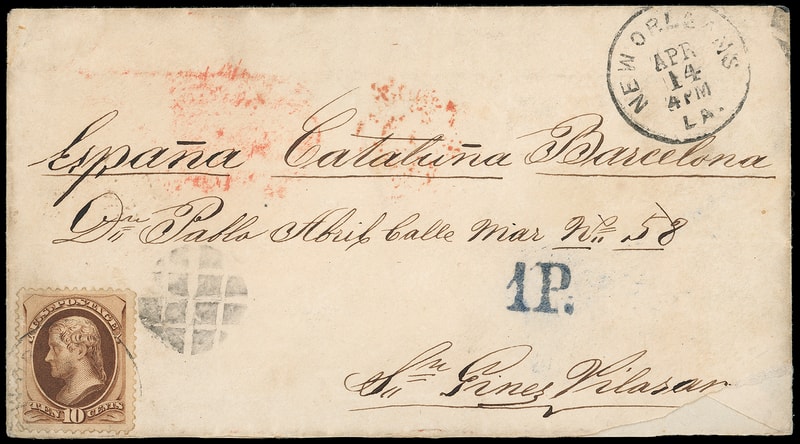 NEW ORLEANS
APR
14
4PM
LA.
España Cataluña Barcelona
Dn Pablo Abril Calle Mar No. 58
1P.
Sn Ginez Vilasar
U.S. POSTAGE
TEN 10 CENTS